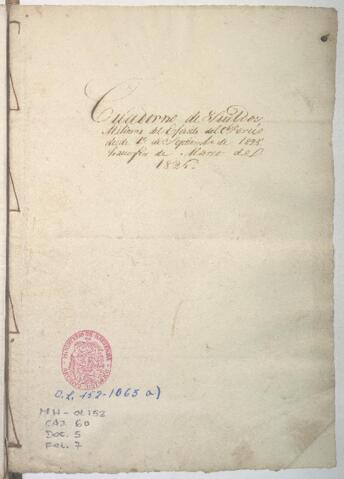 Cuaderno de Sueldos
Militares del Estado del Perú
desde 1º de Septiembre de 1825
hasta fin de Marzo del
1826.
MINISTERIO DE HACIENDA
O.L. 152-1065 a)
MH-OL152
CAJ. 60
Doc. 5
Fol. 7